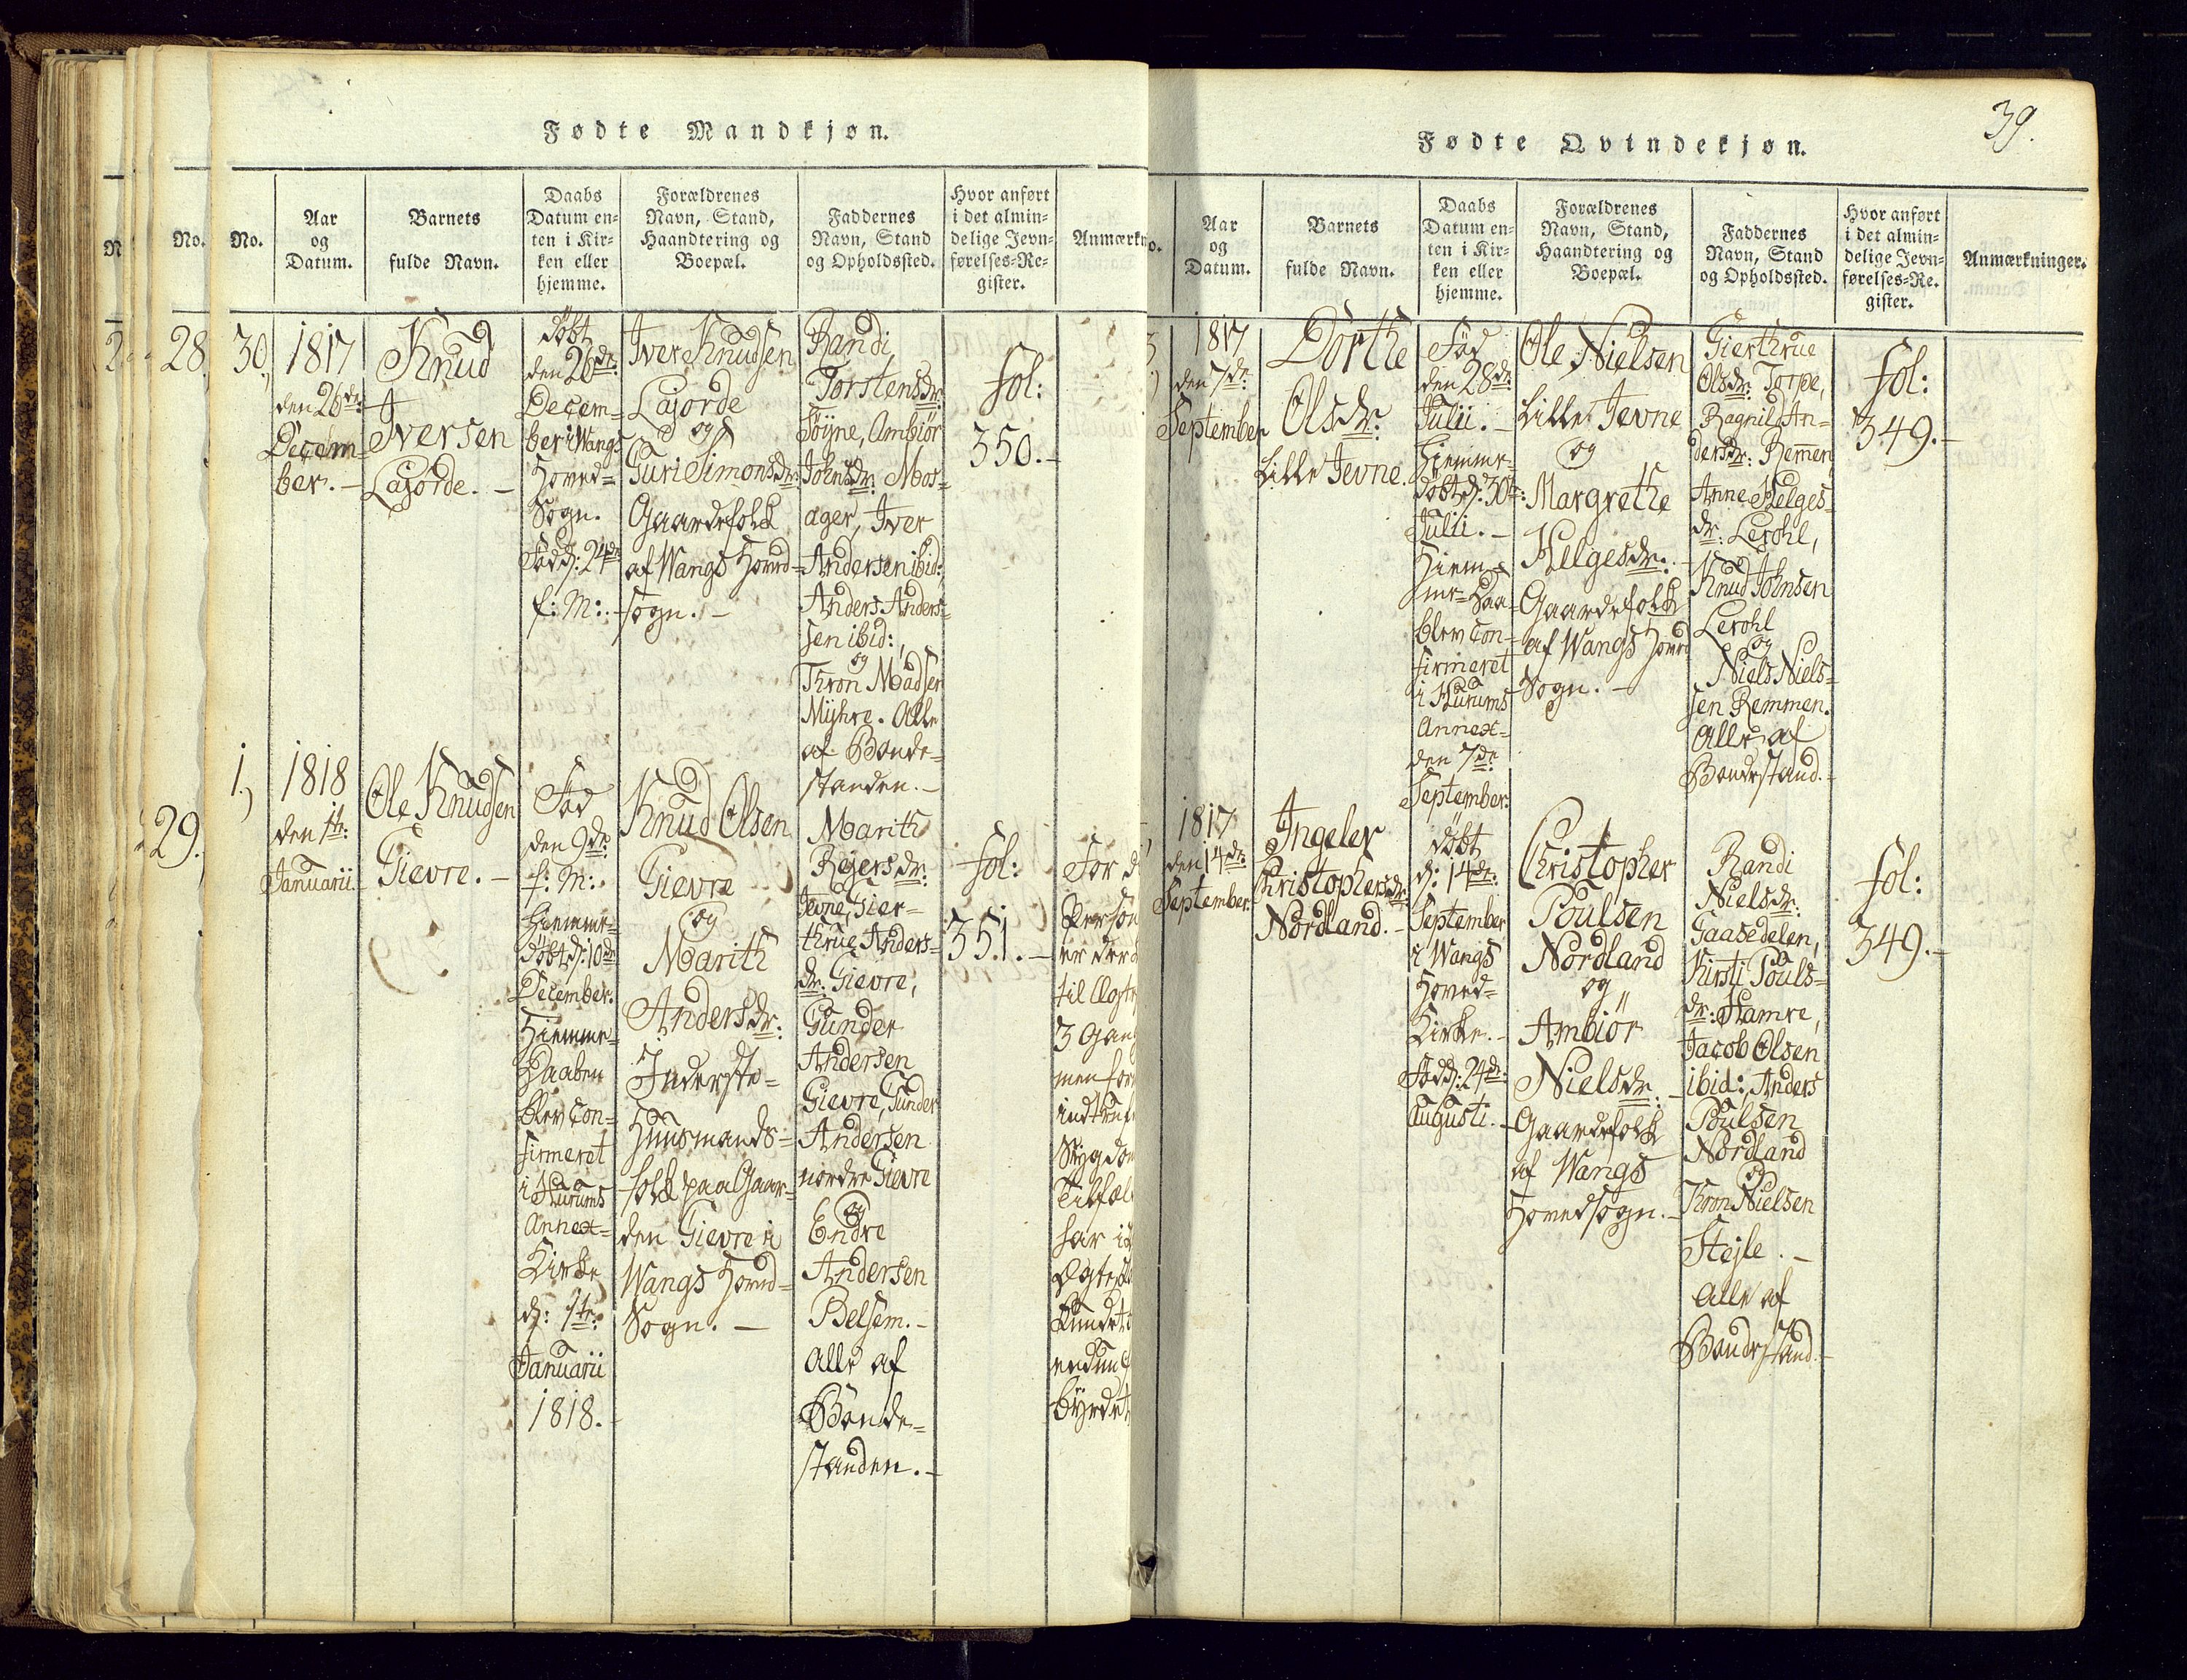 Fødte Mandkjøn.
No.
Aar
og
Datum.
Barnets
fulde Navn.
Daabs
Datum en-
ten i Kir-
ken eller
hjemme.
Forældrenes
Navn, Stand,
Haandtering og
Boepæl.
Faddernes
Navn, Stand
og Opholdssted.
Hvor anført
i det almin-
delige Jevn-
førelses-Re-
gister.
Anmærkn
28
29.
30,
1817
den 26de
Decem-
ber. -
Knud
Iversen
Lajorde. -
døbt
den 26de
Decem-
ber i Wangs
Hoved-
Sogn.
Fød d: 24de
s: M: -
Iver Knudsen
Lajorde
og
Guri Simonsdr:
Gaardefolk
af Wangs Hoved-
sogn. -
Randi
Torstensdr:
Søyne, Ambiør
Johnsdr: Mos-
ager, Iver
Andersen ibid:,
Anders Anders-
sen ibid:,
og
Thron Madsen
Myhre. Alle
af Bonde-
standen. -
fol:
350. -
1.,
1818
den 1te:
Januarii.
Ole Knudsen
Gievre. -
Fød
den 9de
s: M:
hjemme-
døbt d: 10de
December.
Hiemme-
Daaben
blev Con-
firmeret
i Hurums
Annex-
Kirke
d: 1te:
Januarii
1818.
Knud Olsen
Gievre
og
Marith
Andersdr:
Inderste-
Huusmands-
folk paa Gaar-
den Gievre i
Wangs Hoved-
Sogn. -
Marith
Rejersdr:
Jevne, Gier-
thrue Anders-
dr: Gievre,
Gunder
Andersen
Gievre, Gunder
Andersen
nordre Gievre
og
Endre
Andersen
Belsem. -
Alle af
Bonde-
standen. -
fol:
351. -
For d
Person
er der
til Ægte
3 Gan
men for
indtruf
Sygdom
Tilfæl
har i
Ægte
Kundet
endnu
Byrdet
39.
Fødte Qvindekjøn.
Aar
og
Datum.
Barnets
fulde Navn.
Daabs
Datum en-
ten i Kir-
ken eller
hjemme.
Forældrenes
Navn, Stand,
Haandtering og
Boepæl.
Faddernes
Navn, Stand
og Opholdssted.
Hvor anført
i det almin-
delige Jevn-
førelses-Re-
gister.
Anmærkninger.
1817
den 7de
September
Dorthe
Olsdr:
Lille Jevne.
Fød
den 28de
Julii. -
Hiemme-
døbt d: 30te:
Julii. -
Hiem-
me-Daa-
blev Con-
firmeret
i Hurums
Annex-
den 7de
September.
Ole Nielsen
Lille Jevne
og
Margrethe
Helgesdr: -
Gaardefolk
af Wangs Hoved
Sogn. -
Gierthrue
Olsdr: Torpe,
Ragnild An-
dersdr: Remen,
Anne Helges-
dr: Lerohl,
Knud Johnsen
Lerohl
og
Niels Niels-
sen Remmen.
Alle af
Bondestand. -
fol:
349. -
1817
den 14de
September.
Ingeler
Christophersdr:
Nordland. -
døbt
d: 14de:
September
i Wangs
Hoved-
Kirke. -
Fød d: 24de:
Augusti. -
Christopher
Poulsen
Nordland
og
Ambiör
Nielsdr: -
Gaardefolk
af Wangs
Hovedsogn. -
Randi
Nielsdr:
Gaasedelen,
Kirsti Pouls-
dr: Hamre,
Jacob Olsen
ibid:, Anders
Poulsen
Nordland
og
Thron Nielsen
Stejle. -
Alle af
Bondestand. -
fol:
349. -